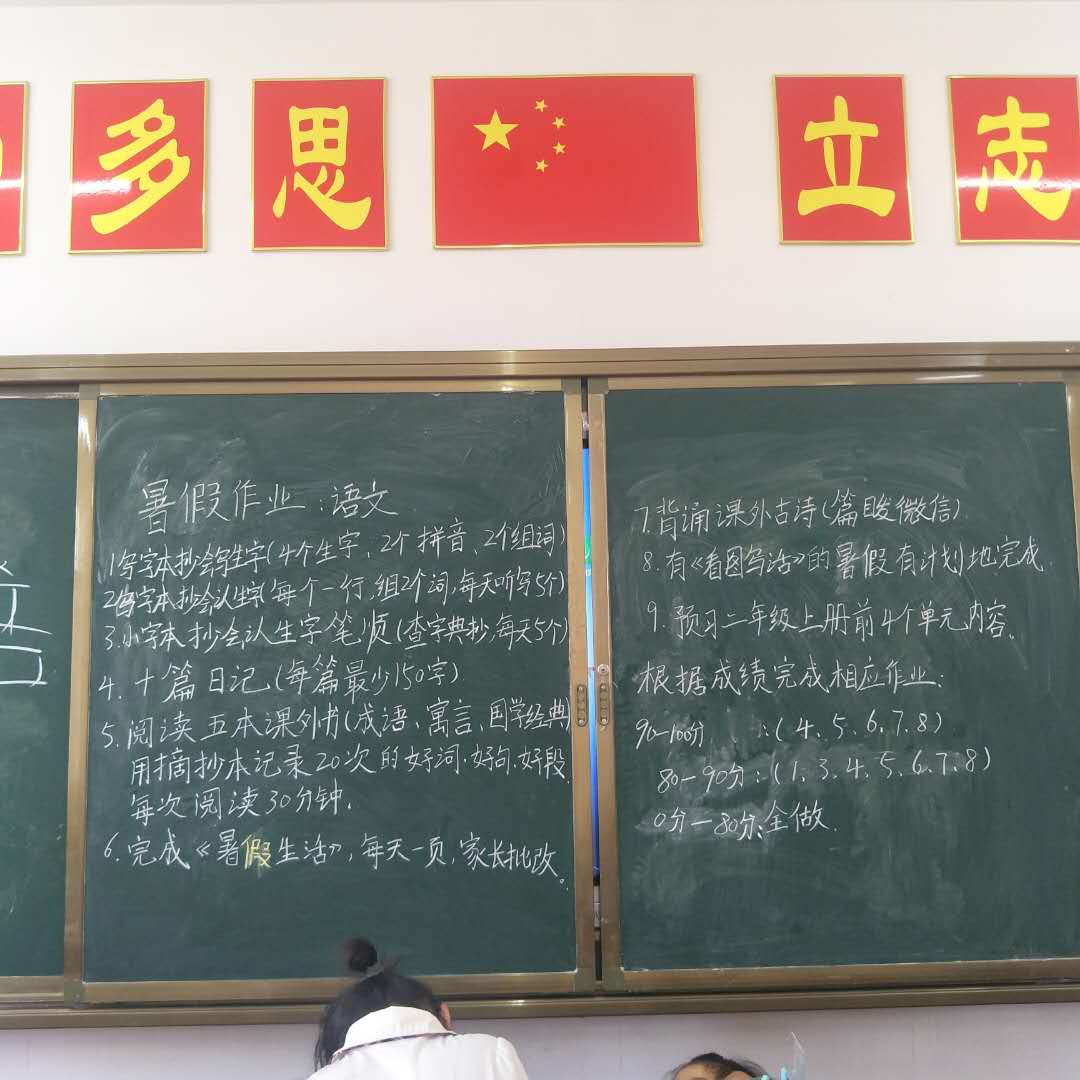 多思 立志
暑假作业:语文
1.写字本抄会写生字(4个生字、2个拼音、2个组词)
2.写字本抄会认生字(每个一行,组2个词,每天听写5个)
3.小字本抄会认生字笔顺(查字典抄,每天5个)
4.十篇日记(每篇最少150字)
5.阅读五本课外书(成语、寓言、国学经典)
用摘抄本记录20次的好词.好句.好段.
每次阅读30分钟.
6.完成《暑假生活》,每天一页,家长批改。
7.背诵课外古诗(篇目发微信)
8.有《看图写话》的暑假有计划地完成.
9.预习二年级上册前4个单元内容。
根据成绩完成相应作业:
90-100分:(4、5、6、7、8)
80-90分:(1、3、4、5、6、7、8)
0分-80分:全做.